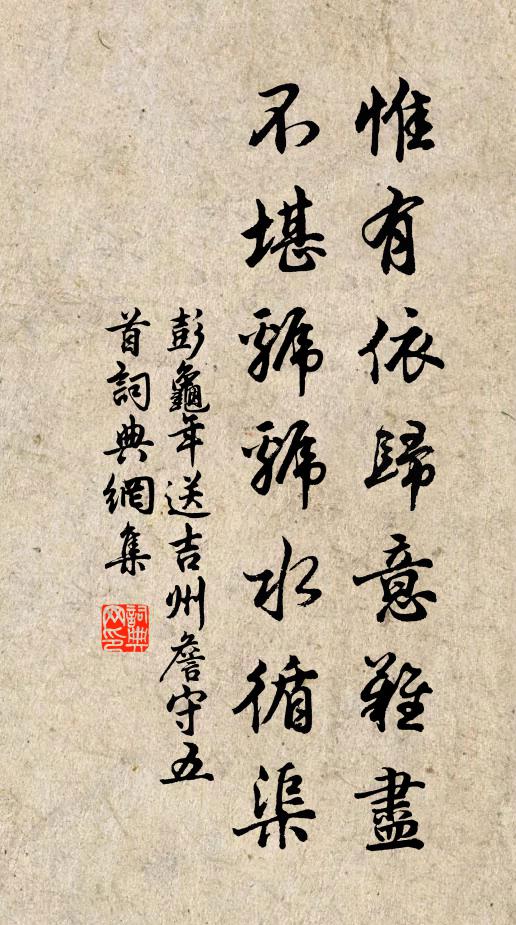 惟有依歸意難盡
不堪虢虢水循渠
彭龜年送吉州詹守五
首詞典網集
詞典
网印